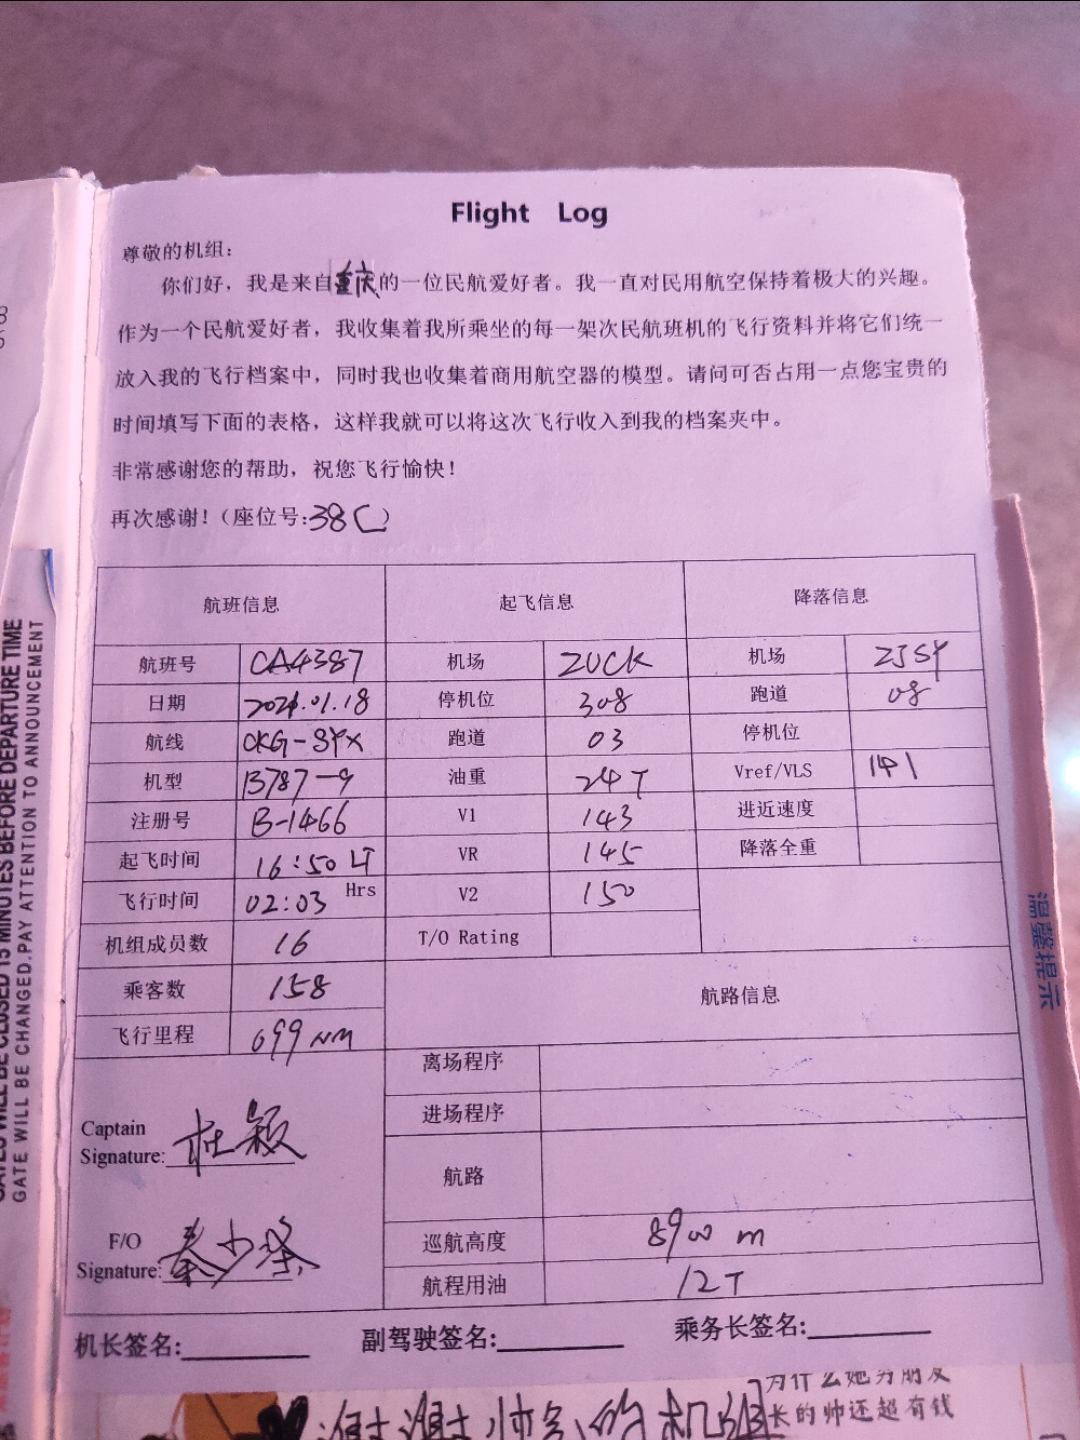 Flight Log
尊敬的机组：
你们好，我是来自重庆的一位民航爱好者。我一直对民用航空保持着极大的兴趣。
作为一个民航爱好者，我收集着我所乘坐的每一架次民航班机的飞行资料并将它们统一
放入我的飞行档案中，同时我也收集着商用航空器的模型。请问可否占用一点您宝贵的
时间填写下面的表格，这样我就可以将这次飞行收入到我的档案夹中。
非常感谢您的帮助，祝您飞行愉快！
再次感谢！（座位号:38C）
航班信息 起飞信息 降落信息
航班号 CA4387 机场 ZUCK 机场 ZJSY
日期 2024.01.18 停机位 308 跑道 08
航线 CKG-SYX 跑道 03 停机位
机型 B787-9 油重 24T Vref/VLS 141
注册号 B-1466 V1 143 进近速度
起飞时间 16:50 LT VR 145 降落全重
飞行时间 02:03 Hrs V2 150
机组成员数 16 T/O Rating
乘客数 158 航路信息
飞行里程 699 NM
离场程序
进场程序
Captain
Signature: 杜颖
航路
F/O
Signature: 秦少
巡航高度 8900 m
航程用油 12T
机长签名: 副驾驶签名: 乘务长签名:
为什么她男朋友
长的帅还超有钱
帅气的机组
MINUTES BEFORE DEPARTURE TIME
GATE WILL BE CHANGED.PAY ATTENTION TO ANNOUNCEMENT
温馨提示